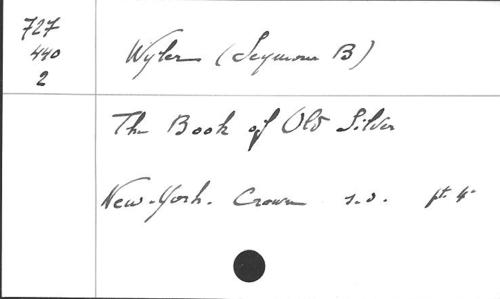 727
440
2
Wyler (Seymour B)
The Book of Old Silver
New-York. Crown s.d. pt. 4°